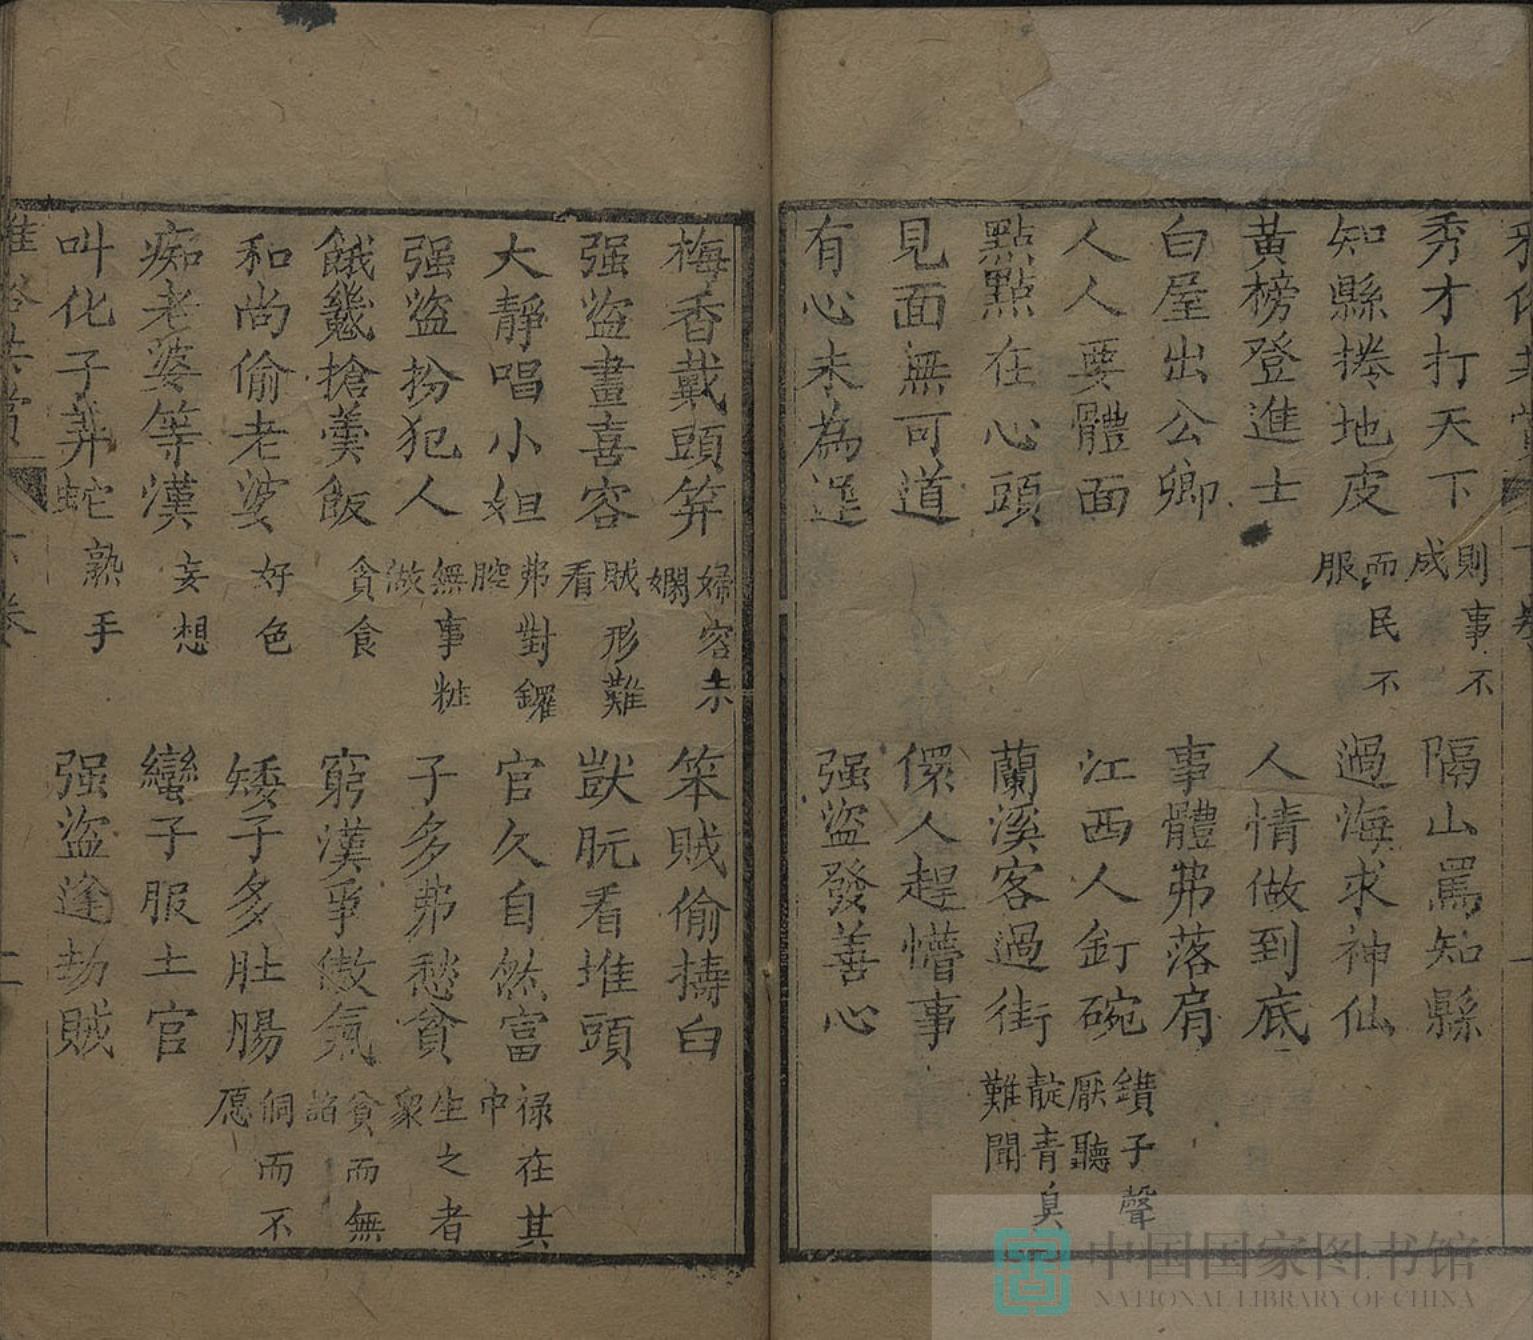 秀才打天下 則事不成 隔山罵知縣
知縣捲地皮 而民不服 過海求神仙
黃榜登進士 人情做到底
白屋出公卿 事體弗落肩
人人要體面 江西人釘碗 鑽子聲厭聽
點點在心頭 蘭溪客過街 靛青臭難聞
見面無可道 儇人趕懵事
有心未為遲 强盜發善心
梅香戴頭笄 婦容未嫺 笨賊偷擣臼
强盜畫喜容 賊形難看 獃朊看堆頭
大靜唱小妲 弗對鑼腔 官久自然富 祿在其中
强盜扮犯人 無事粧做 子多弗愁貧 生之者衆
餓鬼搶羹飯 貪食 窮漢爭傲氣 貧而無諂
和尚偷老婆 好色 矮子多肚腸 侗而不愿
痴老婆等漢 妄想 蠻子服土官
叫化子弄蛇 熟手 强盜逢劫賊
中国国家图书馆
NATIONAL LIBRARY OF CHINA